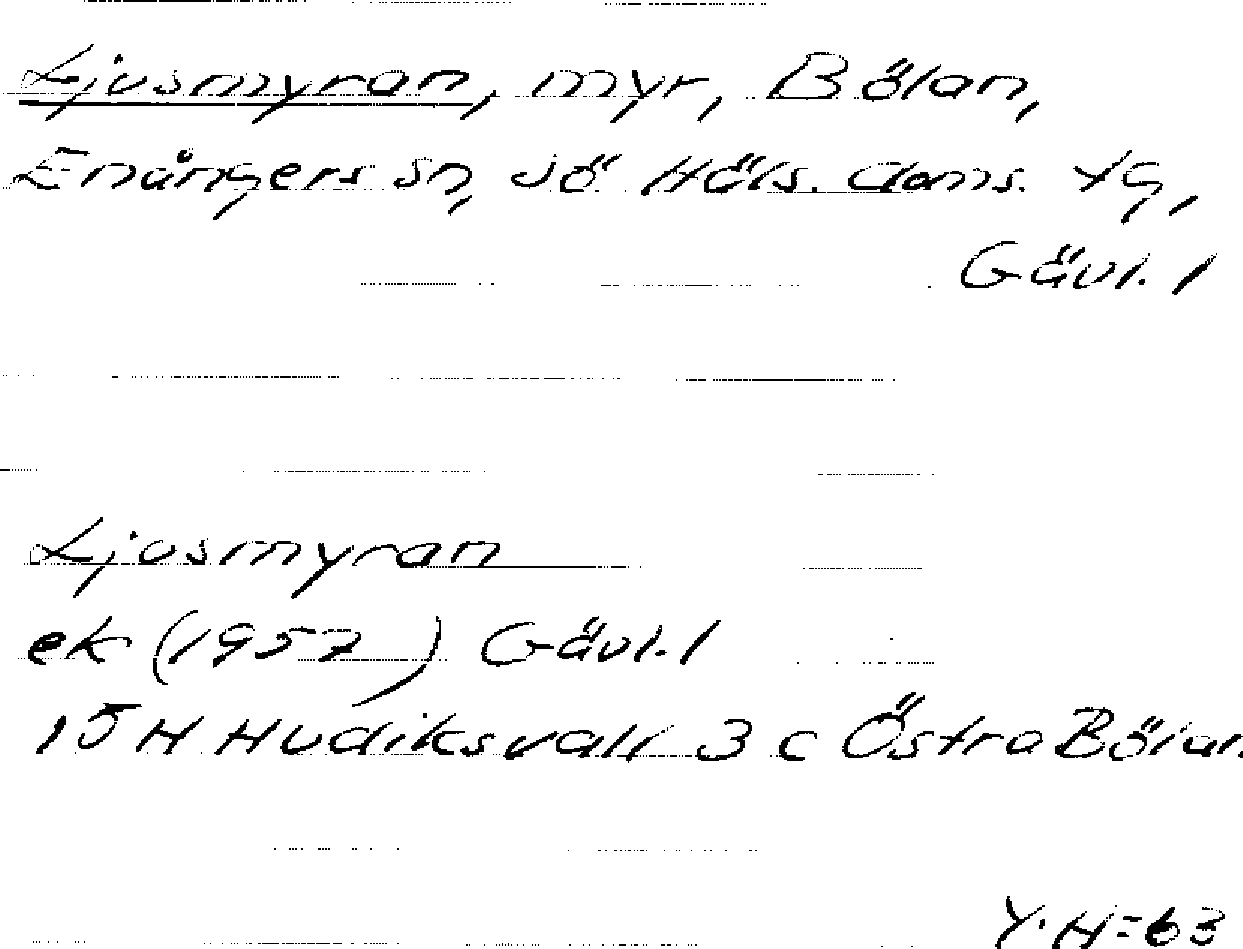 Ljusmyran, myr, Bölan,
Enångers sn, Sö Häls. doms. tg,
Gävl. l
Ljusmyran
ek (1957) Gävl. l
15 H Hudiksvall 3 c Östra Bölan
Y. H-63